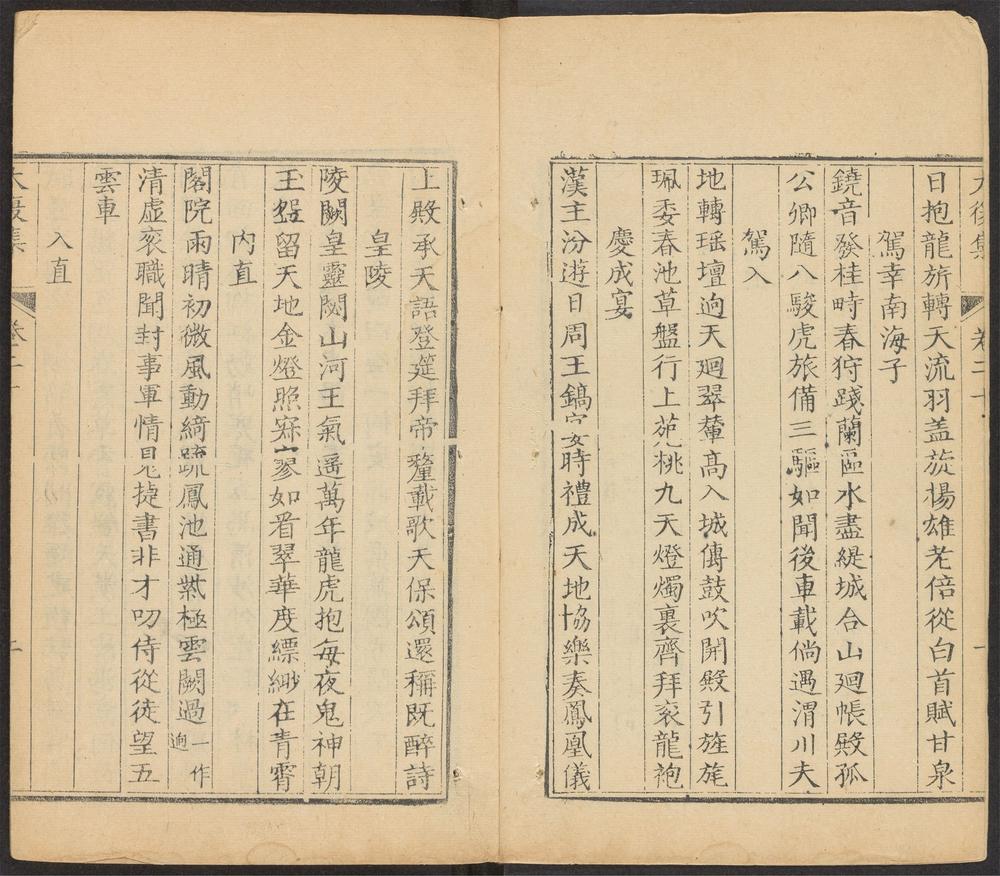 大復集 卷二十 一
日抱龍旂轉天流羽蓋旋揚雄老倍從白首賦甘泉
駕幸南海子
鐃音發桂畤春狩踐蘭區水盡緹城合山廻帳殿孤
公卿隨八駿虎旅備三驅如聞後車載倘遇渭川夫
駕入
地轉瑶壇逈天廻翠輦高入城傳鼓吹開殿引旌旄
珮委春池草盤行上苑桃九天燈燭裏齊拜衮龍袍
慶成宴
漢主汾遊日周王鎬宴時禮成天地協樂奏鳳凰儀
上殿承天語登筵拜帝釐載歌天保頌還稱既醉詩
皇陵
陵闕皇靈閟山河王氣遥萬年龍虎抱每夜鬼神朝
玉盌留天地金燈照寂寥如看翠華度縹緲在青霄
内直
閣院雨晴初微風動綺疏鳳池通紫極雲闕過一作逈
清虚衮職聞封事軍情見捷書非才叨侍從徒望五
雲車
入直
大復集 卷二十 二